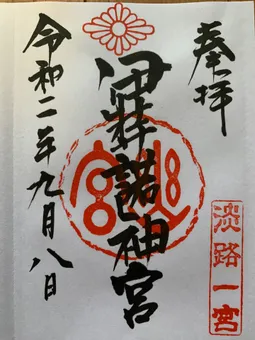 奉拝
伊弉諾神宮
淡路一宮
令和二年九月八日